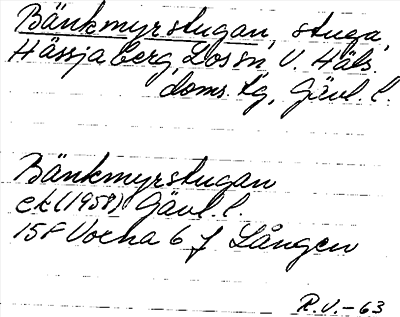 Bänkmyrstugan, stuga,
Hässjaberg, Los sn V. Häls.
doms. tg, Gävl. l.
Bänkmyrstugan
ek (1958) Gävl. l.
15F Voxna 6 f Lången
R.V.-63